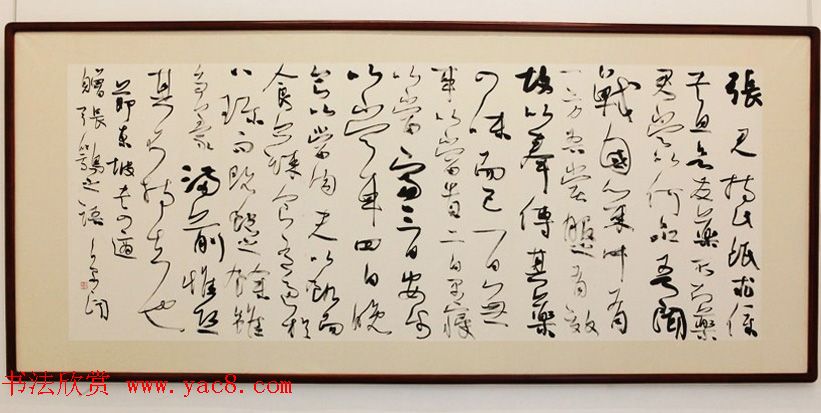 張君持此紙求僕
書且欲發藥不知藥
君當以何品吾聞
戰國策中有
一方吾嘗服之有效
故以奉傳其藥
四味而已一曰無
事以當貴二曰早寢
以當富三曰安步
以當車四曰晚
食以當肉夫以飢而
食蔬食有過於
八珍而既飽之餘雖
芻豢滿前惟恐
其不持去也
節東坡
贈張鶚之語
书法欣赏 www.yac8.com